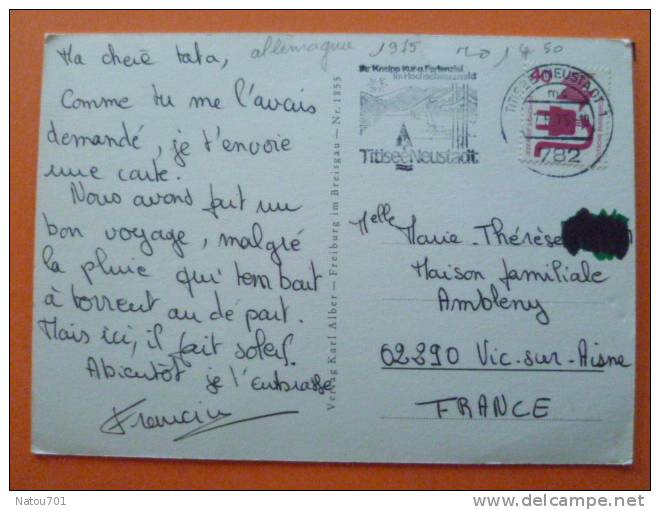 Ma cheïe tata,
allemagne 1975 50
Comme tu me l'avais
demandé, je t'envoie
une carte.
Nous avons fait un
bon voyage, malgré
la pluie qui tombait
à torrent au départ.
Mais ici, il fait soleil.
Abientôt je t'embrasse
Francin
Verlag Karl Alber — Freiburg im Breisgau — Nr. 1855
im Hochschwarzwald
Titisee Neustadt
TITISEE-NEUSTADT 1
782
Melle
Marie-Thérèse
Maison familiale
Ambleny
02290 Vic-sur-Aisne
FRANCE
Natou701
delcampe.net